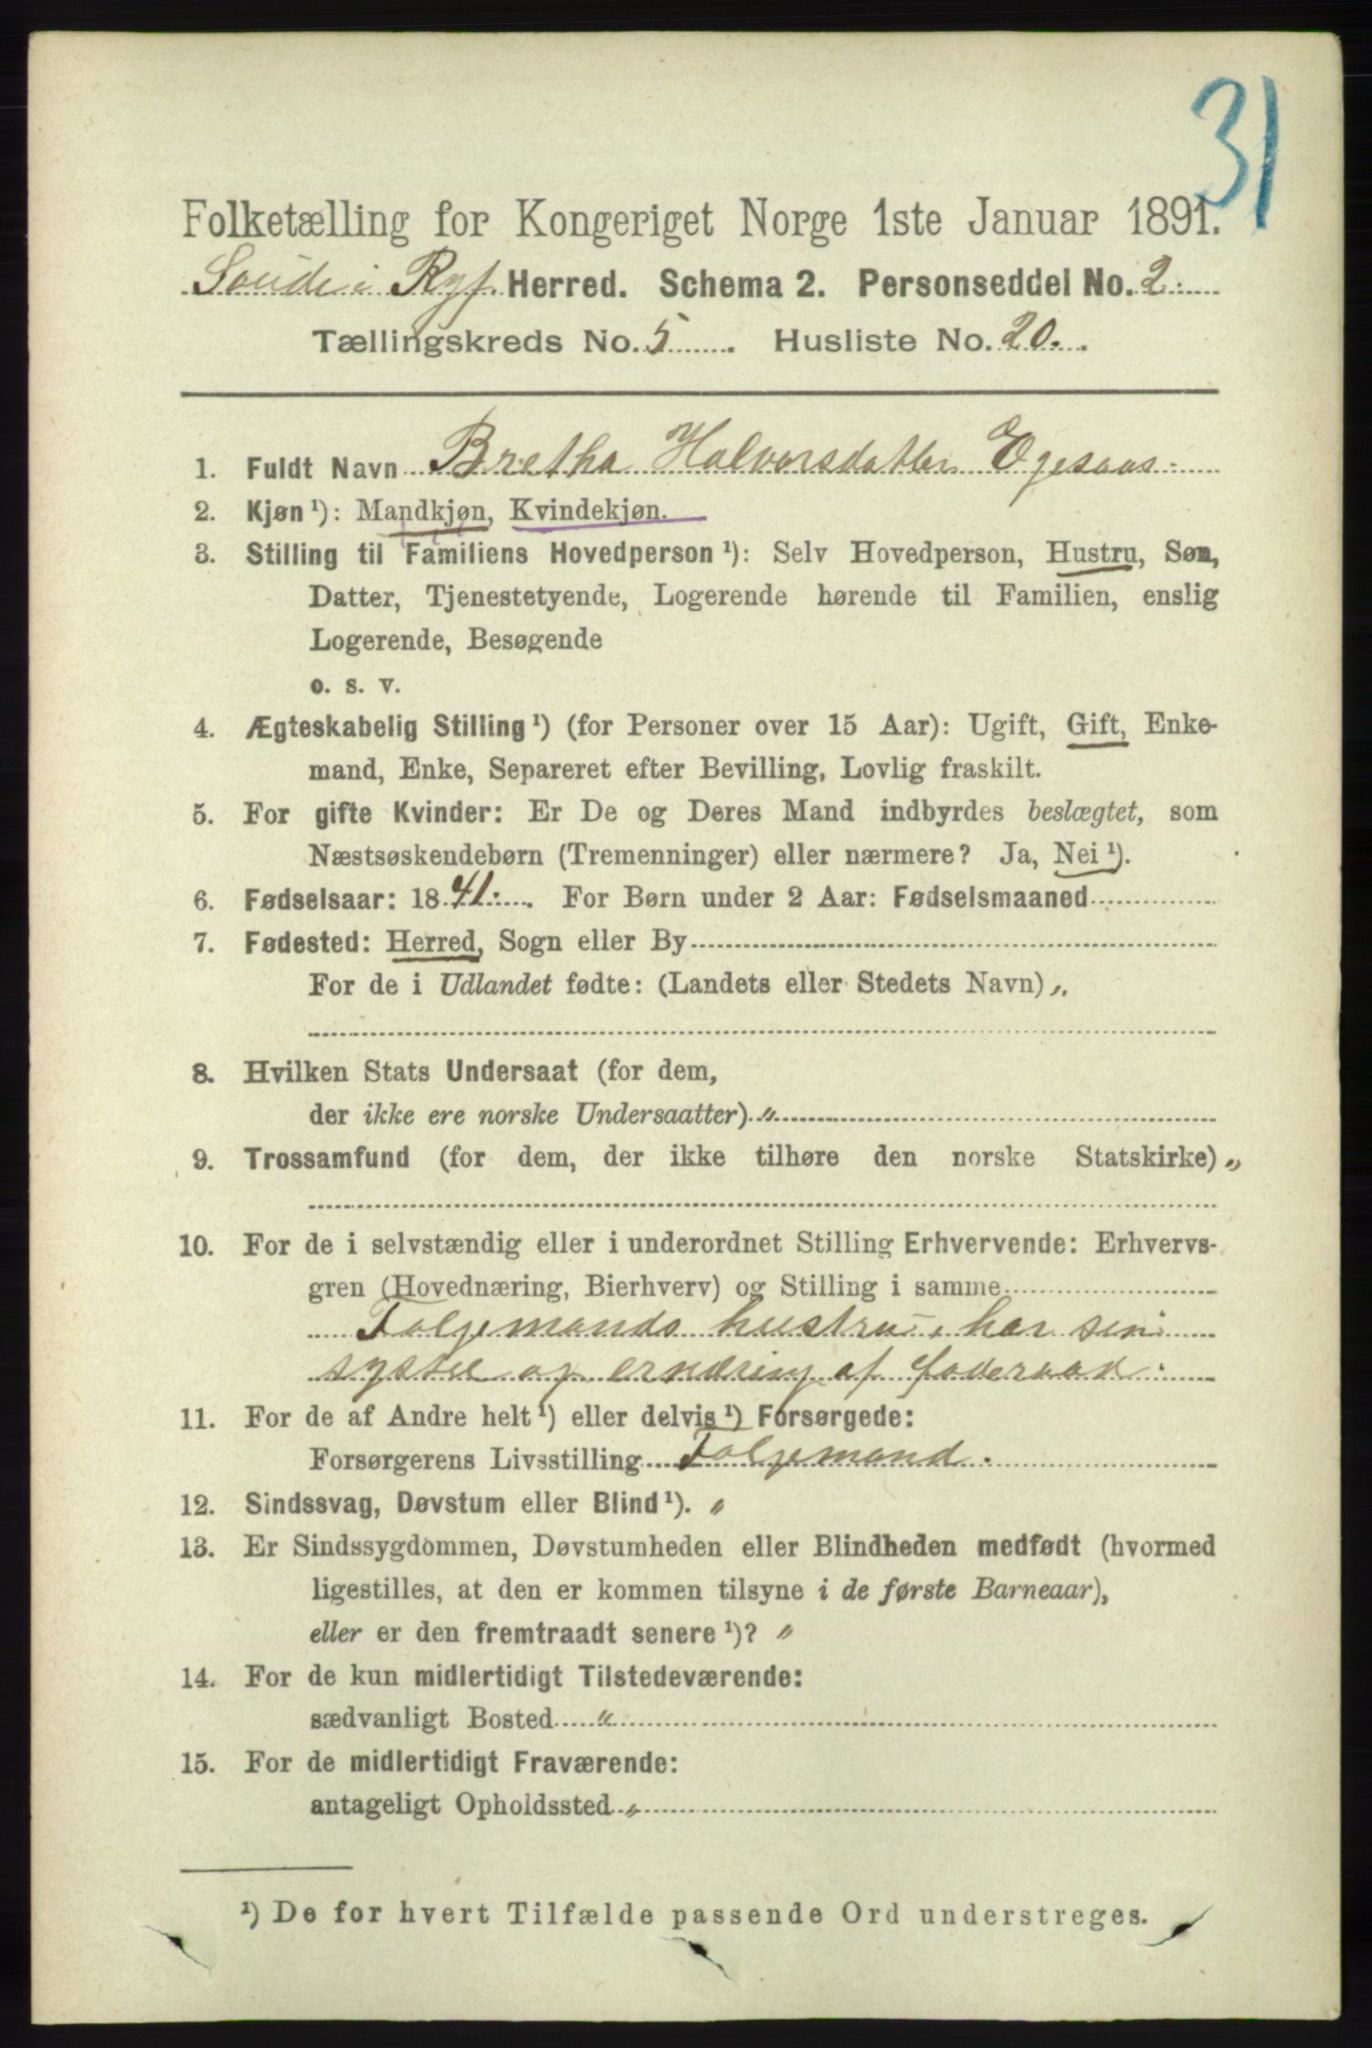 31
Folketælling for Kongeriget Norge 1ste Januar 1891.
Saude i Ryf. Herred. Schema 2. Personseddel No. 2.
Tællingskreds No. 5. Husliste No. 20.
1. Fuldt Navn Bretha Halvorsdatter Egesaas.
2. Kjøn ¹): Mandkjøn, Kvindekjøn.
3. Stilling til Familiens Hovedperson ¹): Selv Hovedperson, Hustru, Søn,
Datter, Tjenestetyende, Logerende hørende til Familien, enslig
Logerende, Besøgende
o. s. v.
4. Ægteskabelig Stilling ¹) (for Personer over 15 Aar): Ugift, Gift, Enke-
mand, Enke, Separeret efter Bevilling, Lovlig fraskilt.
5. For gifte Kvinder: Er De og Deres Mand indbyrdes beslægtet, som
Næstsøskendebørn (Tremenninger) eller nærmere? Ja, Nei ¹).
6. Fødselsaar: 1841. For Børn under 2 Aar: Fødselsmaaned
7. Fødested: Herred, Sogn eller By
For de i Udlandet fødte: (Landets eller Stedets Navn) „
8. Hvilken Stats Undersaat (for dem,
der ikke ere norske Undersaatter) „
9. Trossamfund (for dem, der ikke tilhøre den norske Statskirke) „
10. For de i selvstændig eller i underordnet Stilling Erhvervende: Erhvervs-
gren (Hovednæring, Bierhverv) og Stilling i samme
Folgemands hustru, har sin
syssel og ernæring af foderaad.
11. For de af Andre helt ¹) eller delvis ¹) Forsørgede:
Forsørgerens Livsstilling Folgemand.
12. Sindssvag, Døvstum eller Blind ¹). „
13. Er Sindssygdommen, Døvstumheden eller Blindheden medfødt (hvormed
ligestilles, at den er kommen tilsyne i de første Barneaar),
eller er den fremtraadt senere ¹)? „
14. For de kun midlertidigt Tilstedeværende:
sædvanligt Bosted „
15. For de midlertidigt Fraværende:
antageligt Opholdssted „
¹) De for hvert Tilfælde passende Ord understreges.